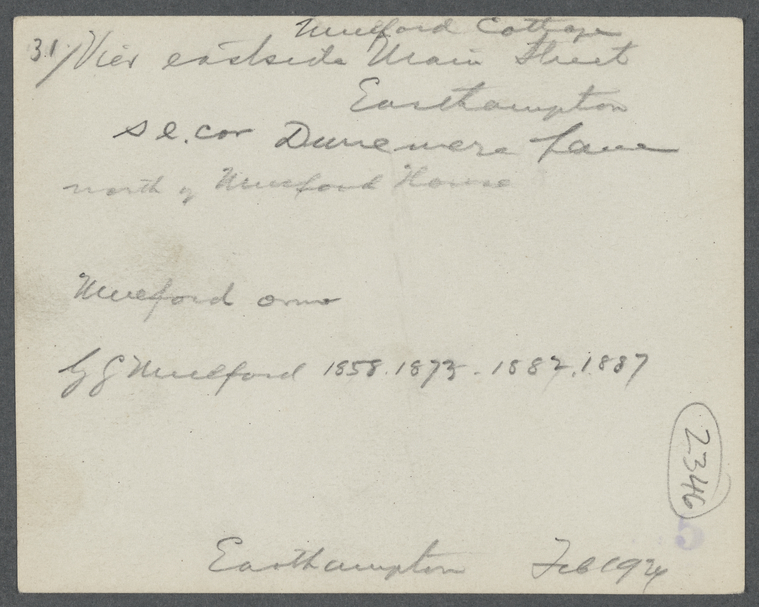 Mulford Cottage
31/ View eastside Main Street
Easthampton
S e. cor Dunemere Lane
north of Mulford House
Mulford own
G G Mulford 1858. 1873 - 1882, 1887
2346
5
Easthampton Feb 1924